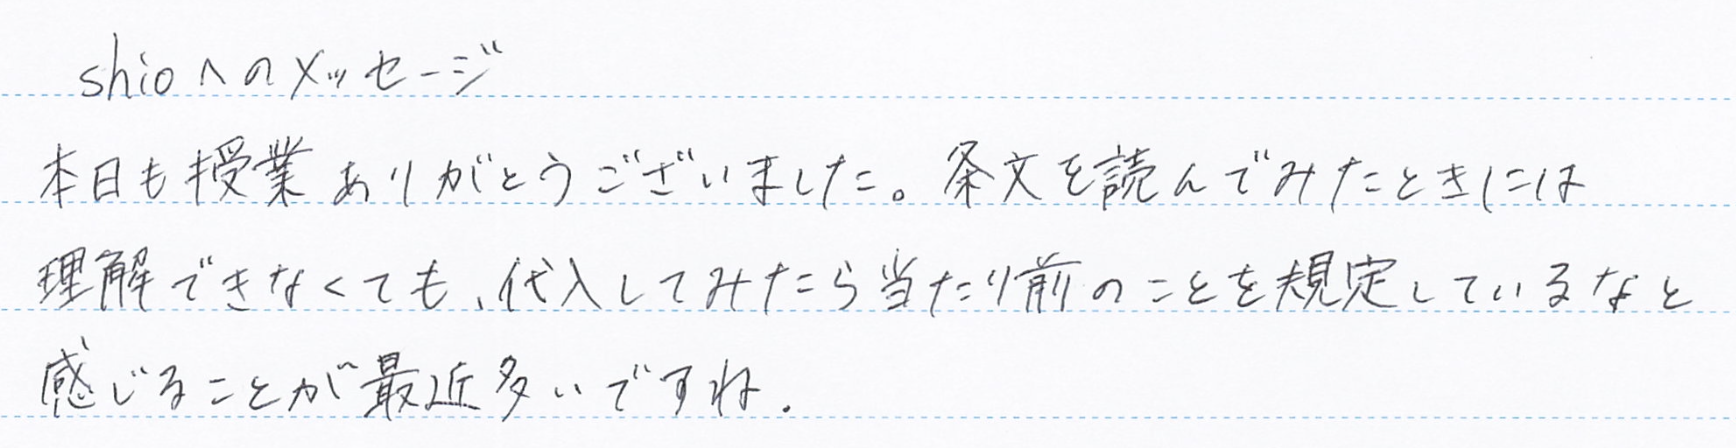 shioへのメッセージ
本日も授業ありがとうございました。条文を読んでみたときには
理解できなくても、代入してみたら当たり前のことを規定しているなと
感じることが最近多いですね.